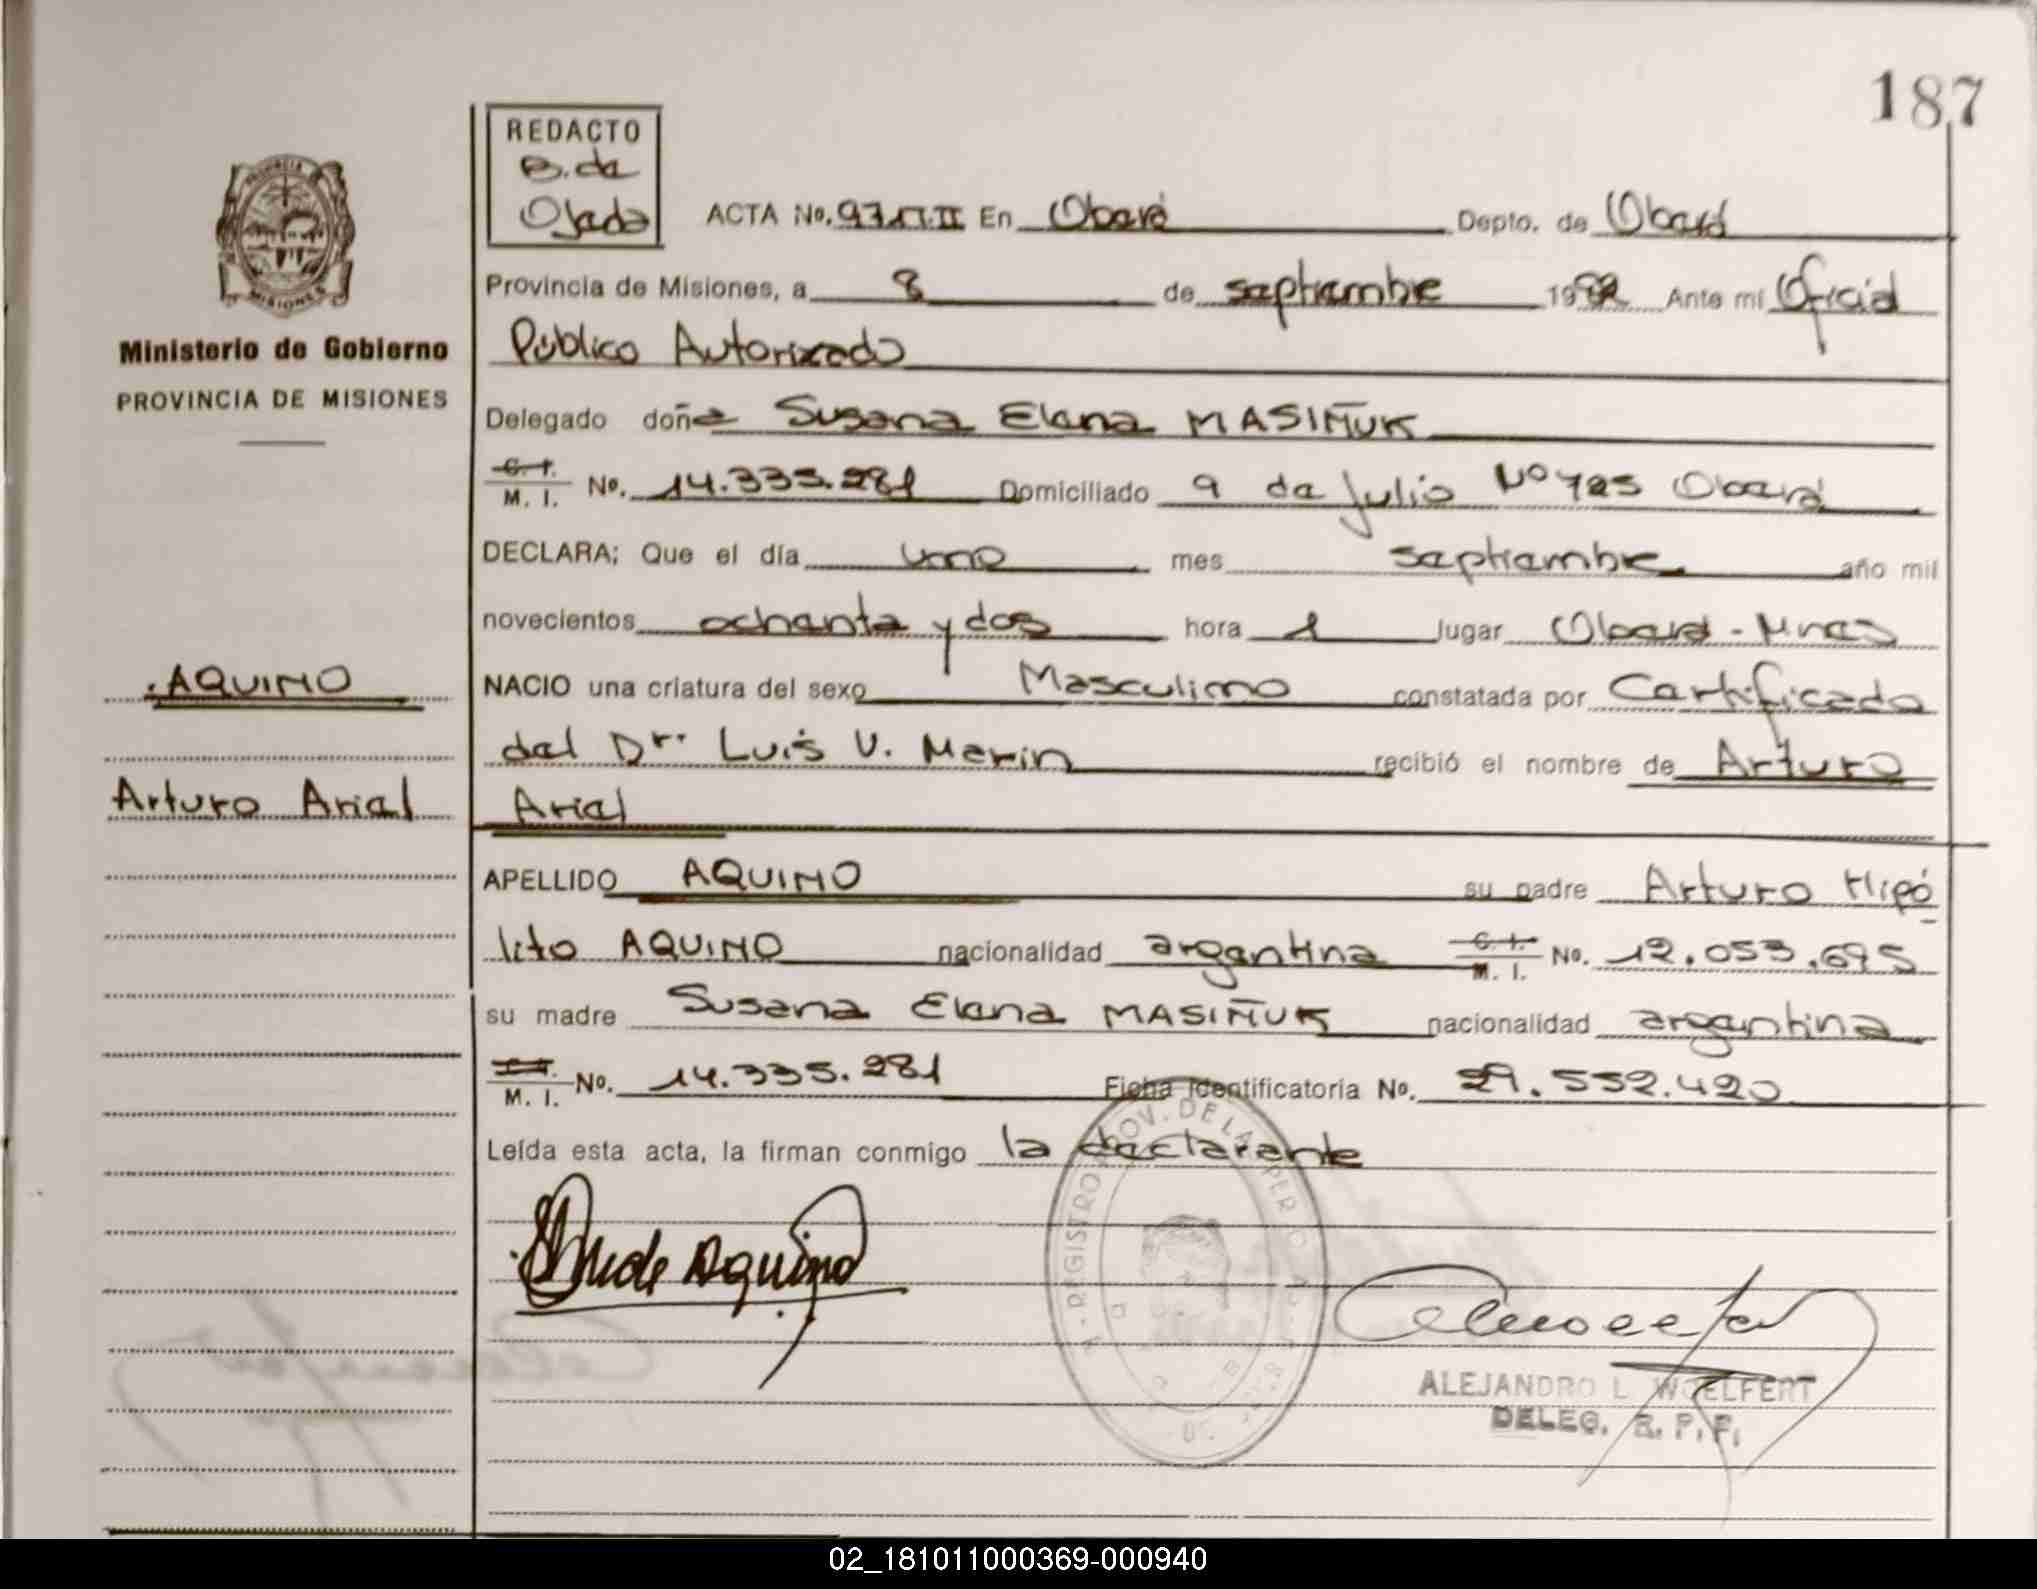 187
REDACTO
B. de
Ojeda
ACTA No. 97 T.II En Oberá Depto. de Oberá
Provincia de Misiones, a 8 de septiembre 1982 Ante mí Oficial
Público Autorizado
Ministerio de Gobierno
PROVINCIA DE MISIONES
Delegado doña Susana Elena MASIÑUK
C. I.
M. I. No. 14.335.281 Domiciliado 9 de Julio Nº 725 Oberá
DECLARA; Que el día uno mes septiembre año mil
novecientos ochenta y dos hora 1 lugar Oberá - Mnes
AQUINO
NACIO una criatura del sexo Masculino constatada por Certificado
del Dr. Luis V. Merin recibió el nombre de Arturo
Arturo Ariel
Ariel
APELLIDO AQUINO su padre Arturo Hipó
lito AQUINO nacionalidad argentina C. I. M. I. No. 12.053.695
su madre Susana Elena MASIÑUK nacionalidad argentina
M. I. No. 14.335.281 Ficha Identificatoria No. 29.552.420
Leída esta acta, la firman conmigo la declarante
de Aquino
REGISTRO PROV. DE LAS PER
ALEJANDRO L WOELFERT
DELEG. R. P. P.
MISIONES
02_181011000369-000940